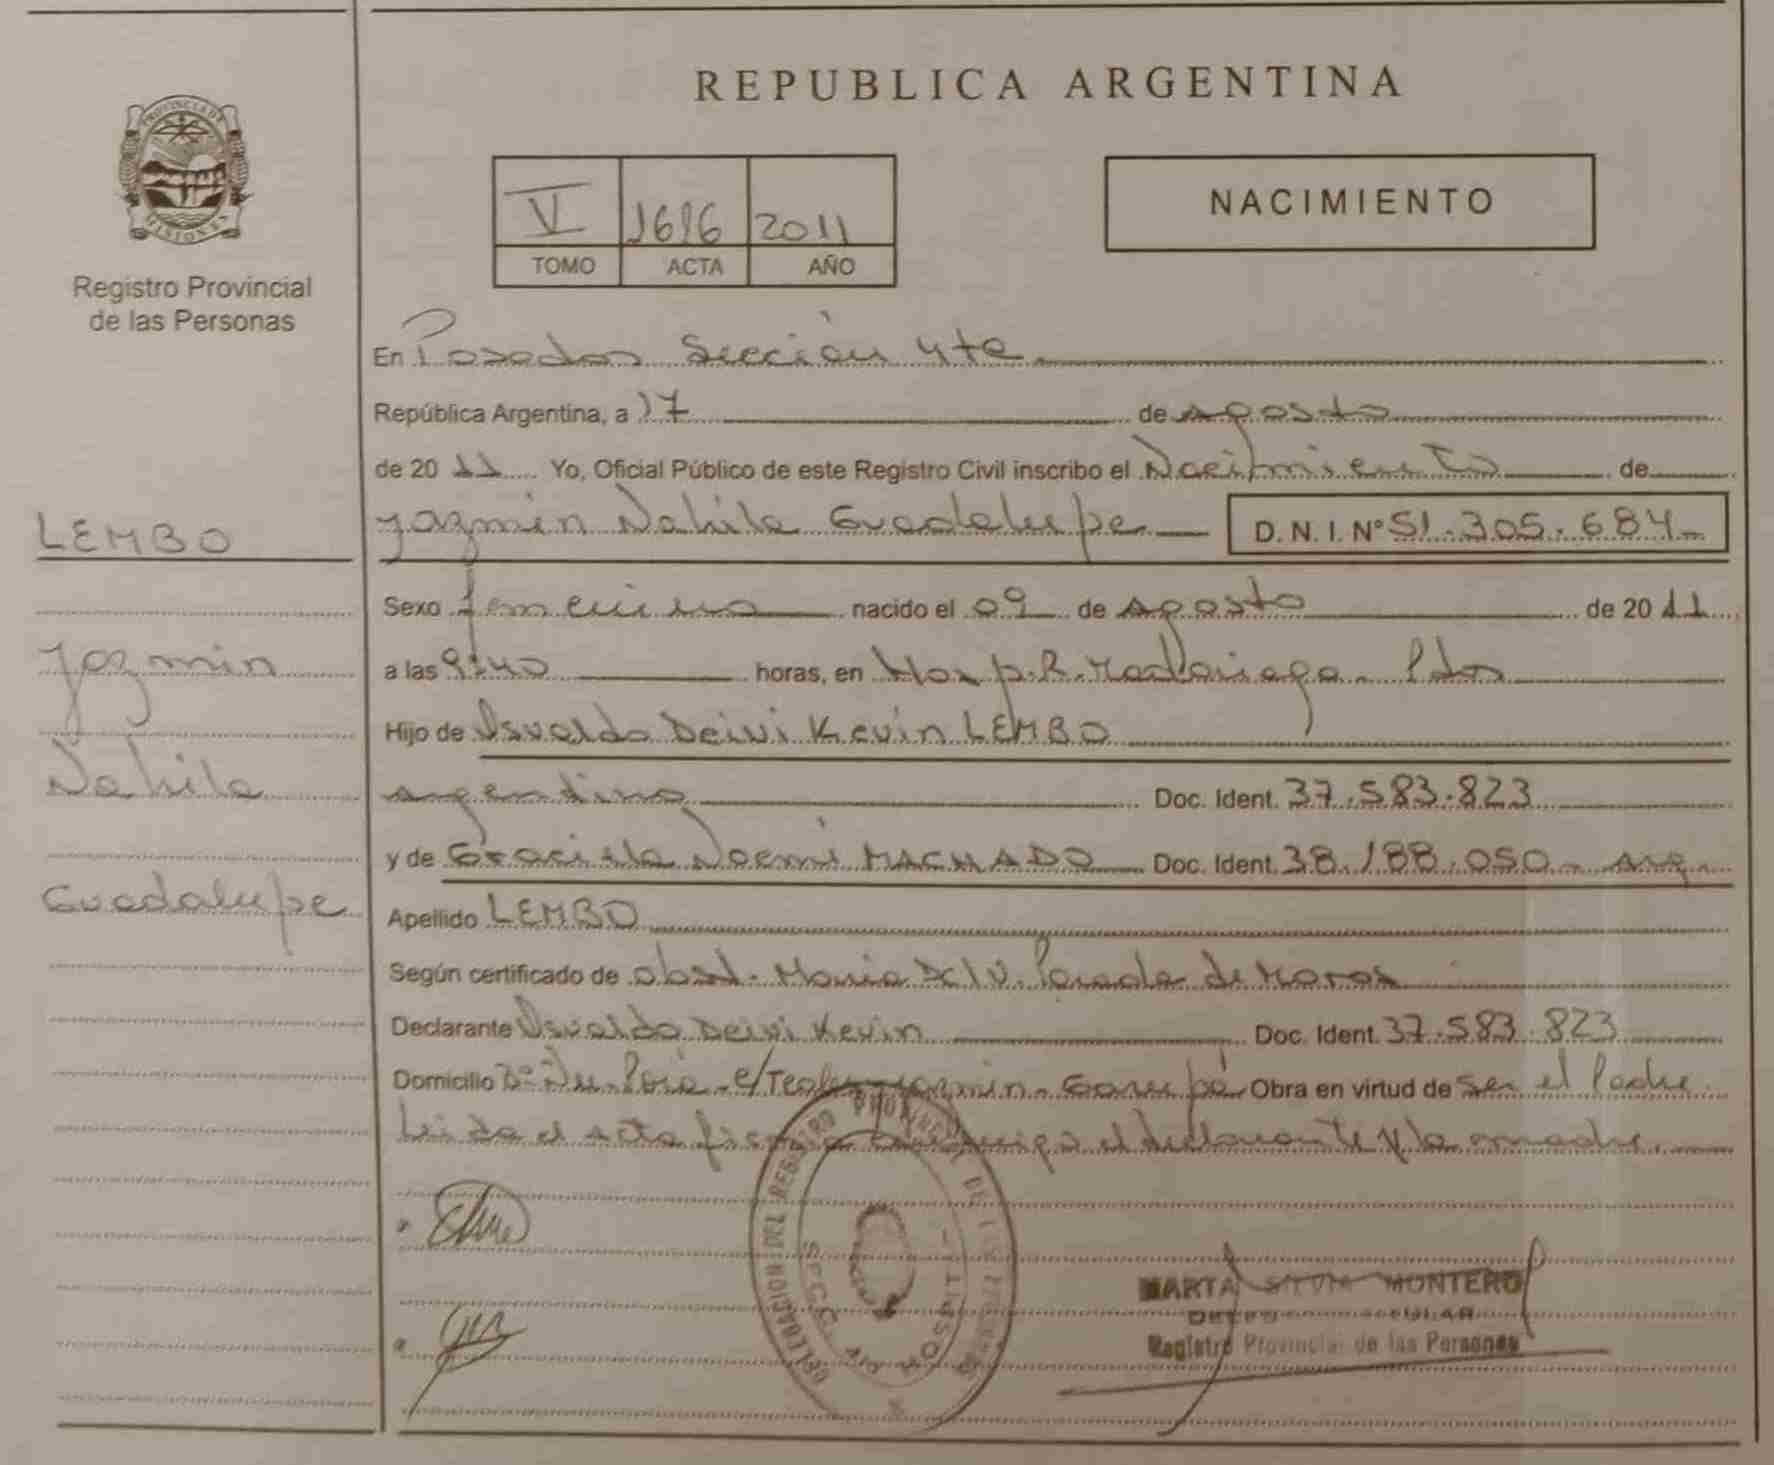 PROVINCIA DE
MISIONES
Registro Provincial
de las Personas
REPUBLICA ARGENTINA
V 1696 2011
TOMO ACTA AÑO
NACIMIENTO
En Posadas Sección 4ta
República Argentina, a 17 de Agosto
de 20 11 Yo, Oficial Público de este Registro Civil inscribo el Nacimiento de
Yazmin Nahila Guadalupe D. N. I. Nº 51.305.684-
Sexo femenino nacido el 09 de Agosto de 20 11
a las 9:40 horas, en Hosp. R. Madariaga - Pdas
Hijo de Osvaldo Deivi Kevin LEMBO
argentino Doc. Ident. 37.583.823
y de Graciela Noemí MACHADO Doc. Ident. 38.188.050 - Arg.
Apellido LEMBO
Según certificado de obst. Maria Del V. Parada de
Declarante Osvaldo Deivi Kevin Doc. Ident. 37.583.823
Domicilio Bº Ñu Porá - e/ Garupá Obra en virtud de ser el Padre.
Leida el acta firma conmigo el declarante y la madre.
LEMBO
Yazmin
Nahila
Guadalupe
DELEGACION DEL REGISTRO PROVINCIAL DE LAS PERSONAS
SECC. 4ta
MARTA SILVIA MONTERO
Registro Provincial de las Personas